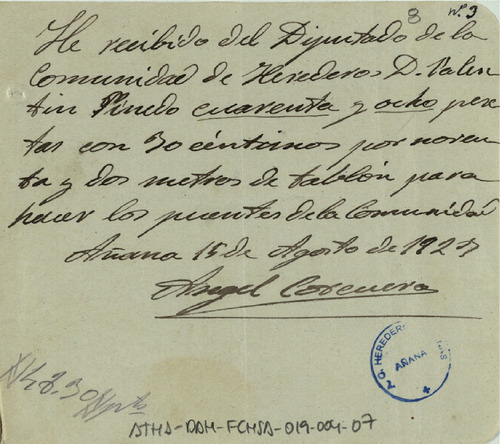 8 nº 3
He recibido del Diputado de la
Comunidad de Herederos D. Valen
tin Pinedo cuarenta y ocho pese
tas con 30 céntimos por noven
ta y dos metros de tablón para
hacer los puentes de la Comunidad
Añana 15 de Agosto de 1927
Angel
48.30
HEREDER
AÑANA
ATHA-DAH-FCHSA-019-004-07